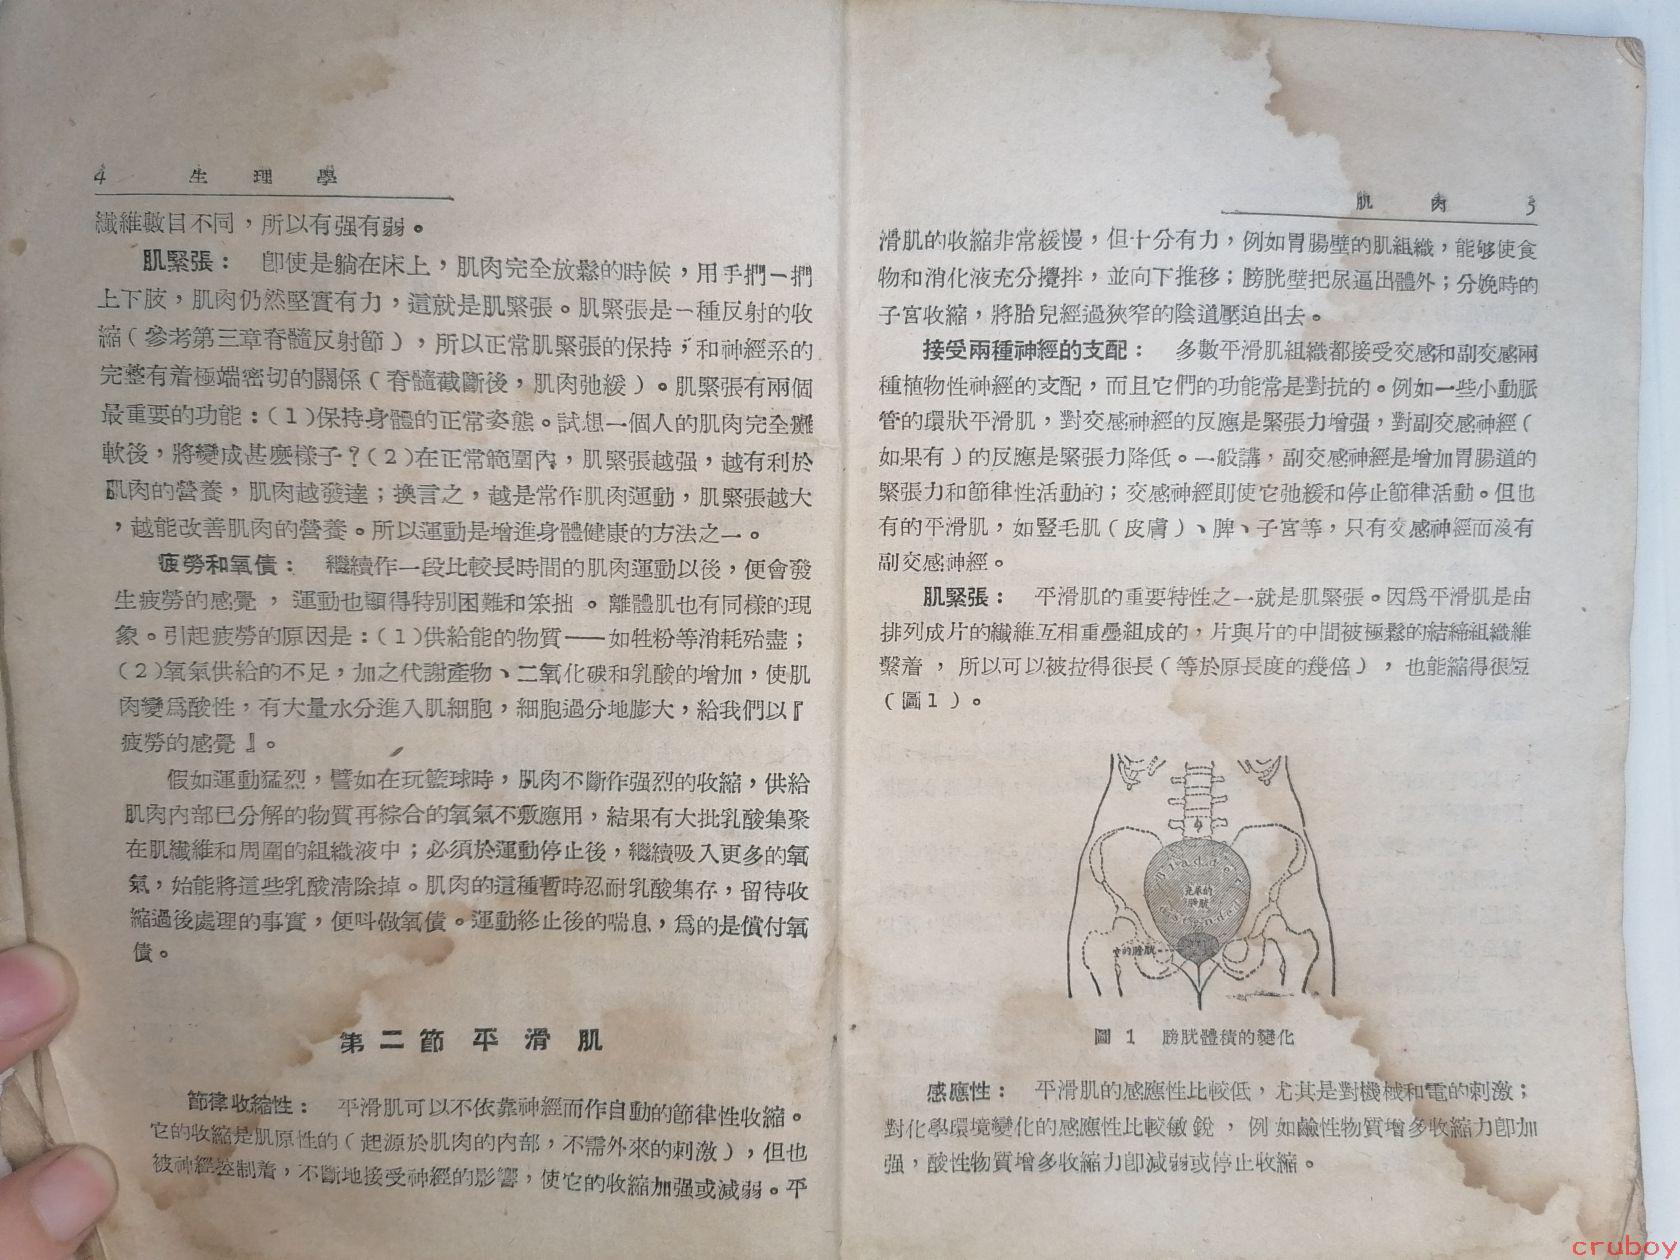 4 生理學
纖維數目不同，所以有强有弱。
肌緊張： 卽使是躺在床上，肌肉完全放鬆的時候，用手捫一捫
上下肢，肌肉仍然堅實有力，這就是肌緊張。肌緊張是一種反射的收
縮（參考第三章脊髓反射節），所以正常肌緊張的保持，和神經系的
完整有着極端密切的關係（脊髓截斷後，肌肉弛緩）。肌緊張有兩個
最重要的功能：(1)保持身體的正常姿態。試想一個人的肌肉完全癱
軟後，將變成甚麽樣子？(2)在正常範圍內，肌緊張越强，越有利於
肌肉的營養，肌肉越發達；換言之，越是常作肌肉運動，肌緊張越大
，越能改善肌肉的營養。所以運動是增進身體健康的方法之一。
疲勞和氧債： 繼續作一段比較長時間的肌肉運動以後，便會發
生疲勞的感覺，運動也顯得特別困難和笨拙。離體肌也有同樣的現
象。引起疲勞的原因是：(1)供給能的物質——如牲粉等消耗殆盡；
(2)氧氣供給的不足，加之代謝產物、二氧化碳和乳酸的增加，使肌
肉變爲酸性，有大量水分進入肌細胞，細胞過分地膨大，給我們以『
疲勞的感覺』。
假如運動猛烈，譬如在玩籃球時，肌肉不斷作强烈的收縮，供給
肌肉內部已分解的物質再綜合的氧氣不敷應用，結果有大批乳酸集聚
在肌纖維和周圍的組織液中；必須於運動停止後，繼續吸入更多的氧
氣，始能將這些乳酸清除掉。肌肉的這種暫時忍耐乳酸集存，留待收
縮過後處理的事實，便叫做氧債。運動終止後的喘息，爲的是償付氧
債。
第二節 平滑肌
節律收縮性： 平滑肌可以不依靠神經而作自動的節律性收縮。
它的收縮是肌原性的（起源於肌肉的內部，不需外來的刺激），但也
被神經控制着，不斷地接受神經的影響，使它的收縮加强或減弱。平
肌肉 5
滑肌的收縮非常緩慢，但十分有力，例如胃腸壁的肌組織，能够使食
物和消化液充分攪拌，並向下推移；膀胱壁把尿逼出體外；分娩時的
子宮收縮，將胎兒經過狹窄的陰道壓迫出去。
接受兩種神經的支配： 多數平滑肌組織都接受交感和副交感兩
種植物性神經的支配，而且它們的功能常是對抗的。例如一些小動脈
管的環狀平滑肌，對交感神經的反應是緊張力增强，對副交感神經（
如果有）的反應是緊張力降低。一般講，副交感神經是增加胃腸道的
緊張力和節律性活動的；交感神經則使它弛緩和停止節律活動。但也
有的平滑肌，如豎毛肌（皮膚）、脾、子宮等，只有交感神經而沒有
副交感神經。
肌緊張： 平滑肌的重要特性之一就是肌緊張。因爲平滑肌是由
排列成片的纖維互相重疊組成的，片與片的中間被極鬆的結締組織維
繫着，所以可以被拉得很長（等於原長度的幾倍），也能縮得很短
（圖1）。
Bladder
充尿的
膀胱
distended
的膀胱
圖 1 膀胱體積的變化
感應性： 平滑肌的感應性比較低，尤其是對機械和電的刺激；
對化學環境變化的感應性比較敏銳，例如鹼性物質增多收縮力卽加
强，酸性物質增多收縮力卽減弱或停止收縮。
cruboy